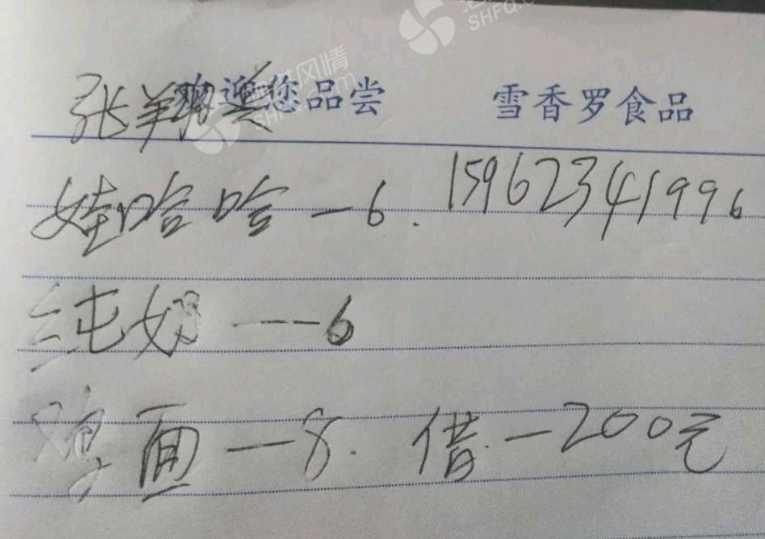 欢迎您品尝 雪香罗食品
张美
娃哈哈 一6. 15962341996
纯奶 一一6
鸡蛋面 一8. 借 一200元